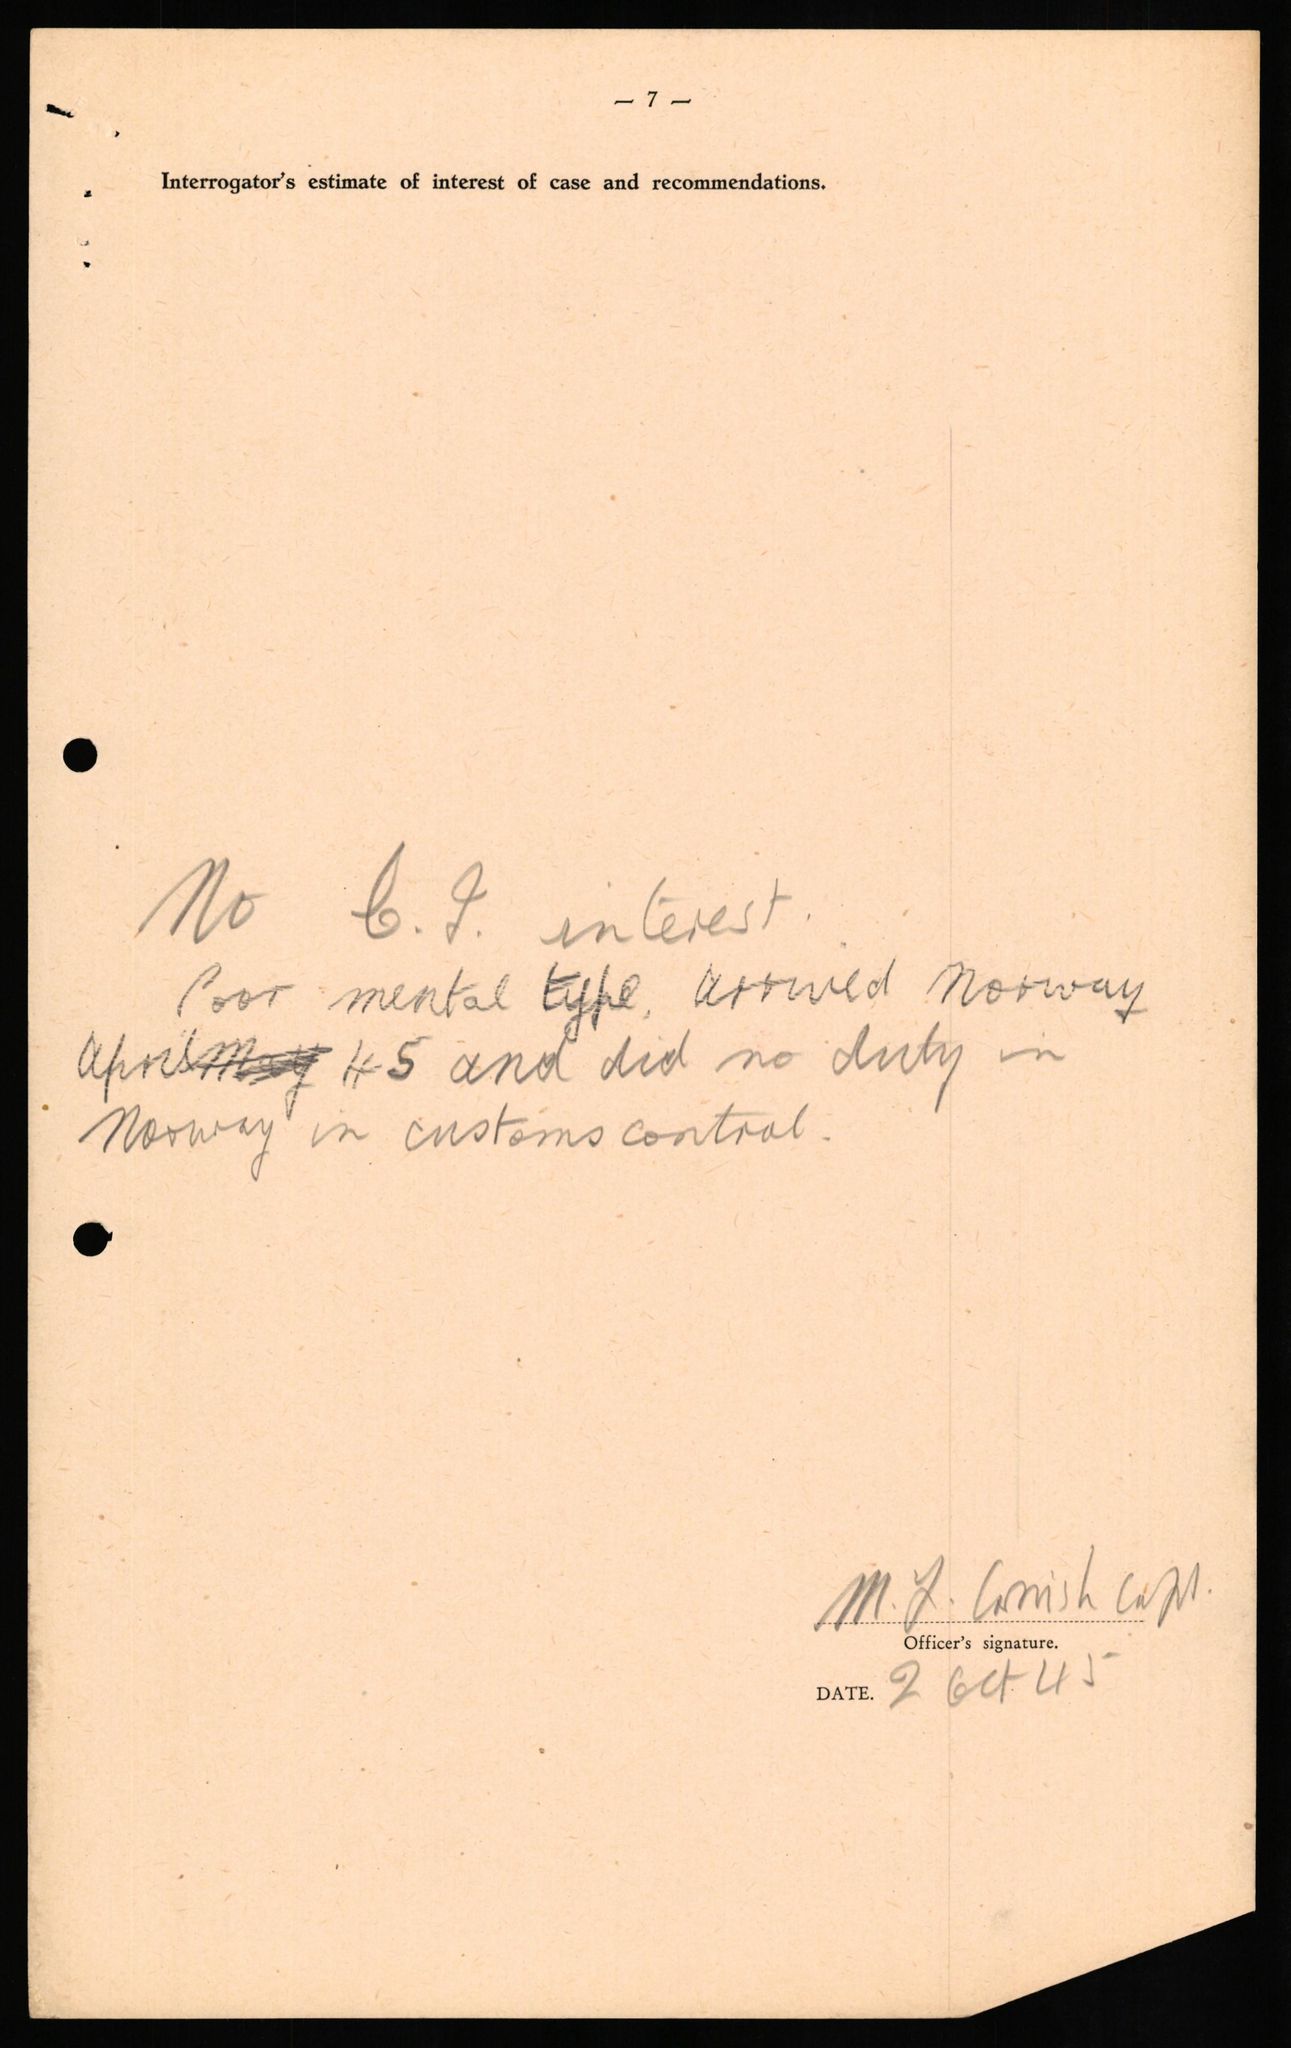 — 7 —
Interrogator's estimate of interest of case and recommendations.
No C.I. interest.
Poor mental type. Arrived Norway
April May 45 and did no duty in
Norway in customs control.
M. J. Cornish Capt.
Officer's signature.
DATE. 2 Oct 45